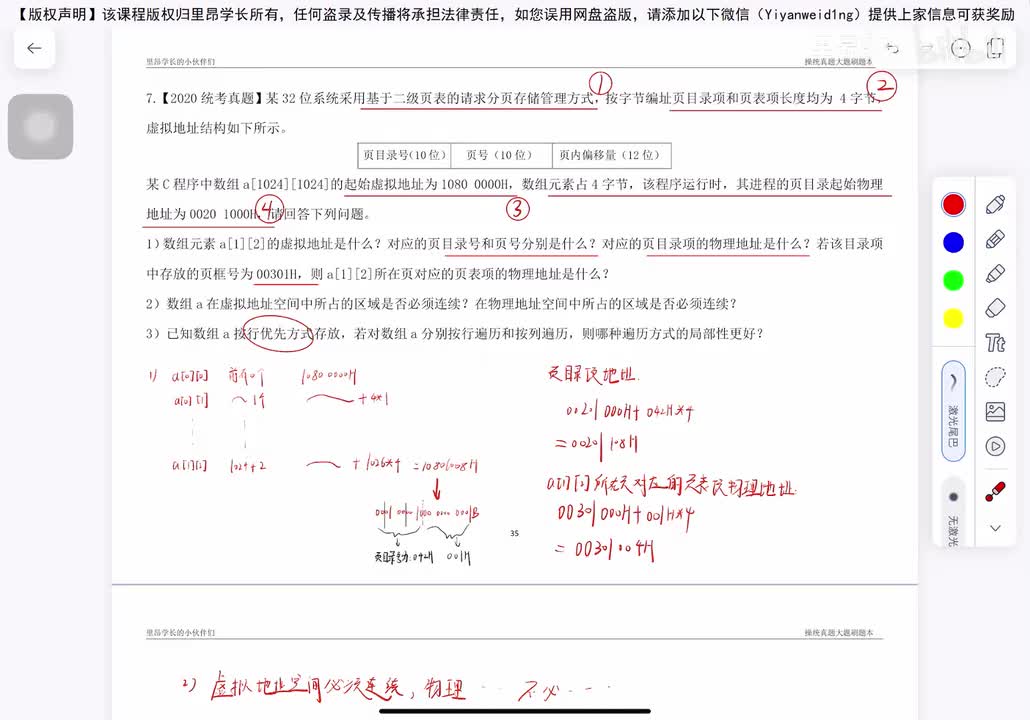 【版权声明】该课程版权归里昂学长所有，任何盗录及传播将承担法律责任，如您误用网盘盗版，请添加以下微信（Yiyanweid1ng）提供上家信息可获奖励
里昂学长的小伙伴们
操统真题大题刷题本
① ②
7.【2020 统考真题】某 32 位系统采用基于二级页表的请求分页存储管理方式，按字节编址页目录项和页表项长度均为 4 字节，
虚拟地址结构如下所示。
页目录号(10 位) 页号（10 位） 页内偏移量（12 位）
某 C 程序中数组 a[1024][1024]的起始虚拟地址为 1080 0000H，数组元素占 4 字节，该程序运行时，其进程的页目录起始物理
地址为 0020 1000H，请回答下列问题。
④ ③
1）数组元素 a[1][2]的虚拟地址是什么？对应的页目录号和页号分别是什么？对应的页目录项的物理地址是什么？若该目录项
中存放的页框号为 00301H，则 a[1][2]所在页对应的页表项的物理地址是什么？
2）数组 a 在虚拟地址空间中所占的区域是否必须连续？在物理地址空间中所占的区域是否必须连续？
3）已知数组 a 按行优先方式存放，若对数组 a 分别按行遍历和按列遍历，则哪种遍历方式的局部性更好？
1) a[0][0] 前有0个 1080 0000H
a[0][1] 1个 +4*1
a[1][2] 1024+2 +1026*4 =10801008H
0001 0000 1000 0000 0001B
页目录号:042H 001H
页目录项地址.
00201000H+042H*4
=00201108H
a[1][2]所在页对应的页表项物理地址.
00301000H+001H*4
=00301004H
35
里昂学长的小伙伴们
操统真题大题刷题本
2) 虚拟地址空间必须连续，物理 ... 不必 ...
Tt
激光尾巴
无激光